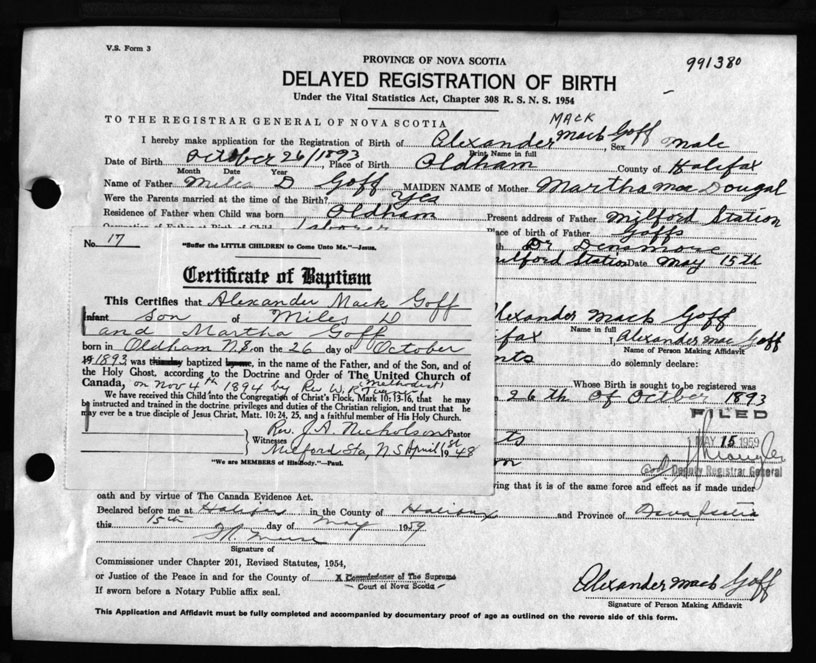 V.S. Form 3
991380
PROVINCE OF NOVA SCOTIA
DELAYED REGISTRATION OF BIRTH
Under the Vital Statistics Act, Chapter 308 R. S. N. S. 1954
TO THE REGISTRAR GENERAL OF NOVA SCOTIA
MACK
I hereby make application for the Registration of Birth of Alexander Mack Goff, Sex Male
Print Name in full
Date of Birth October 26/1893, Place of Birth Oldham County of Halifax
Month Date Year
Name of Father Miles D Goff MAIDEN NAME of Mother Martha Mac Dougal
Were the Parents married at time of the Birth? Yes
Residence of Father when Child was born Oldham Present address of Father Milford Station
Laborer Place of birth of Father Goffs
Dr Densmore
Milford Station Date May 15th
No. 17
"Suffer the LITTLE CHILDREN to Come Unto Me."—Jesus.
Certificate of Baptism
This Certifies that Alexander Mack Goff
Infant son of Miles D
and Martha Goff
born in Oldham N.S. on the 26 day of October
1893 was baptized, in the name of the Father, and of the Son, and of
the Holy Ghost, according to the Doctrine and Order of The United Church of
Canada, on Nov 4th 1894 by Rev W. (Methodist)
We have received this Child into the Congregation of Christ's Flock, Mark 10; 13-16, that he may
be instructed and trained in the doctrine, privileges and duties of the Christian religion, and trust that he
may ever be a true disciple of Jesus Christ, Matt. 10: 24, 25, and a faithful member of His Holy Church.
Rev. J. A. Nicholson Pastor
Witnesses
Milford Sta, N.S April 1st 1948
"We are MEMBERS of His Body."—Paul.
Alexander Mack Goff
Name in full
I, Alexander Mac Goff
Name of Person Making Affidavit
do solemnly declare:
Whose Birth is sought to be registered was
26th of Octber 1893
FILED
MAY 15 1959
Deputy Registrar General
ing that it is of the same force and effect as if made under
oath and by virtue of The Canada Evidence Act.
Declared before me at Halifax in the County of Halifax and Province of Nova Scotia
this 15th day of May 1959
Signature of
Commissioner under Chapter 201, Revised Statutes, 1954,
or Justice of the Peace in and for the County of A Commissioner of The Supreme
Court of Nova Scotia
If sworn before a Notary Public affix seal.
Alexander Mack Goff
Signature of Person Making Affidavit
This Application and Affidavit must be fully completed and accompanied by documentary proof of age as outlined on the reverse side of this form.